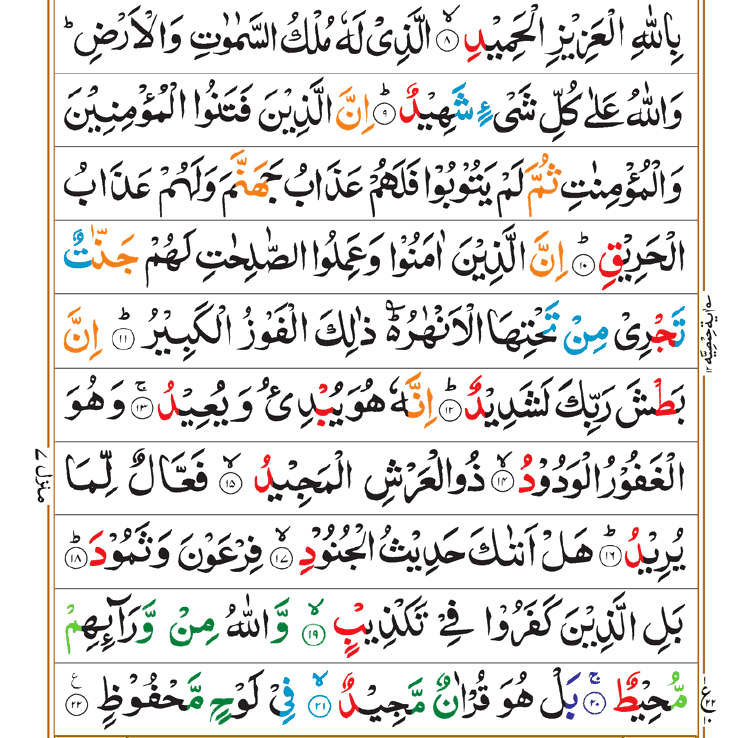 بِاللّٰهِ الْعَزِيْزِ الْحَمِيْدِۙ‏ ﴿۸﴾ الَّذِىْ لَهٗ مُلْكُ السَّمٰوٰتِ وَالْاَرْضِ ؕ
وَاللّٰهُ عَلٰى كُلِّ شَىْءٍ شَهِيْدٌ ؕ‏ ﴿۹﴾ اِنَّ الَّذِيْنَ فَتَنُوا الْمُؤْمِنِيْنَ
وَالْمُؤْمِنٰتِ ثُمَّ لَمْ يَتُوْبُوْا فَلَهُمْ عَذَابُ جَهَنَّمَ وَلَهُمْ عَذَابُ
الْحَرِيْقِؕ‏ ﴿۱۰﴾ اِنَّ الَّذِيْنَ اٰمَنُوْا وَعَمِلُوا الصّٰلِحٰتِ لَهُمْ جَنّٰتٌ
تَجْرِىْ مِنْ تَحْتِهَا الْاَنْهٰرُ ؕۚ ذٰلِكَ الْفَوْزُ الْكَبِيْرُؕ‏ ﴿۱۱﴾ اِنَّ
بَطْشَ رَبِّكَ لَشَدِيْدٌ ؕ‏ ﴿۱۲﴾ اِنَّهٗ هُوَ يُبْدِئُ وَيُعِيْدُ‌ ۚ‏ ﴿۱۳﴾ وَهُوَ
الْغَفُوْرُ الْوَدُوْدُۙ‏ ﴿۱۴﴾ ذُو الْعَرْشِ الْمَجِيْدُ ۙ‏ ﴿۱۵﴾ فَعَّالٌ لِّمَا
يُرِيْدُ ؕ‏ ﴿۱۶﴾ هَلْ اَتٰٮكَ حَدِيْثُ الْجُـنُوْدِۙ‏ ﴿۱۷﴾ فِرْعَوْنَ وَثَمُوْدَؕ‏ ﴿۱۸﴾
بَلِ الَّذِيْنَ كَفَرُوْا فِىْ تَكْذِيْبٍۙ‏ ﴿۱۹﴾ وَّاللّٰهُ مِنْ وَّرَآئِهِمْ
مُّحِيْطٌۚ‏ ﴿۲۰﴾ بَلْ هُوَ قُرْاٰنٌ مَّجِيْدٌ ۙ‏ ﴿۲۱﴾ فِىْ لَوْحٍ مَّحْفُوْظٍ ﴿۲۲﴾ ع
منزل ۷
ع ۲۲